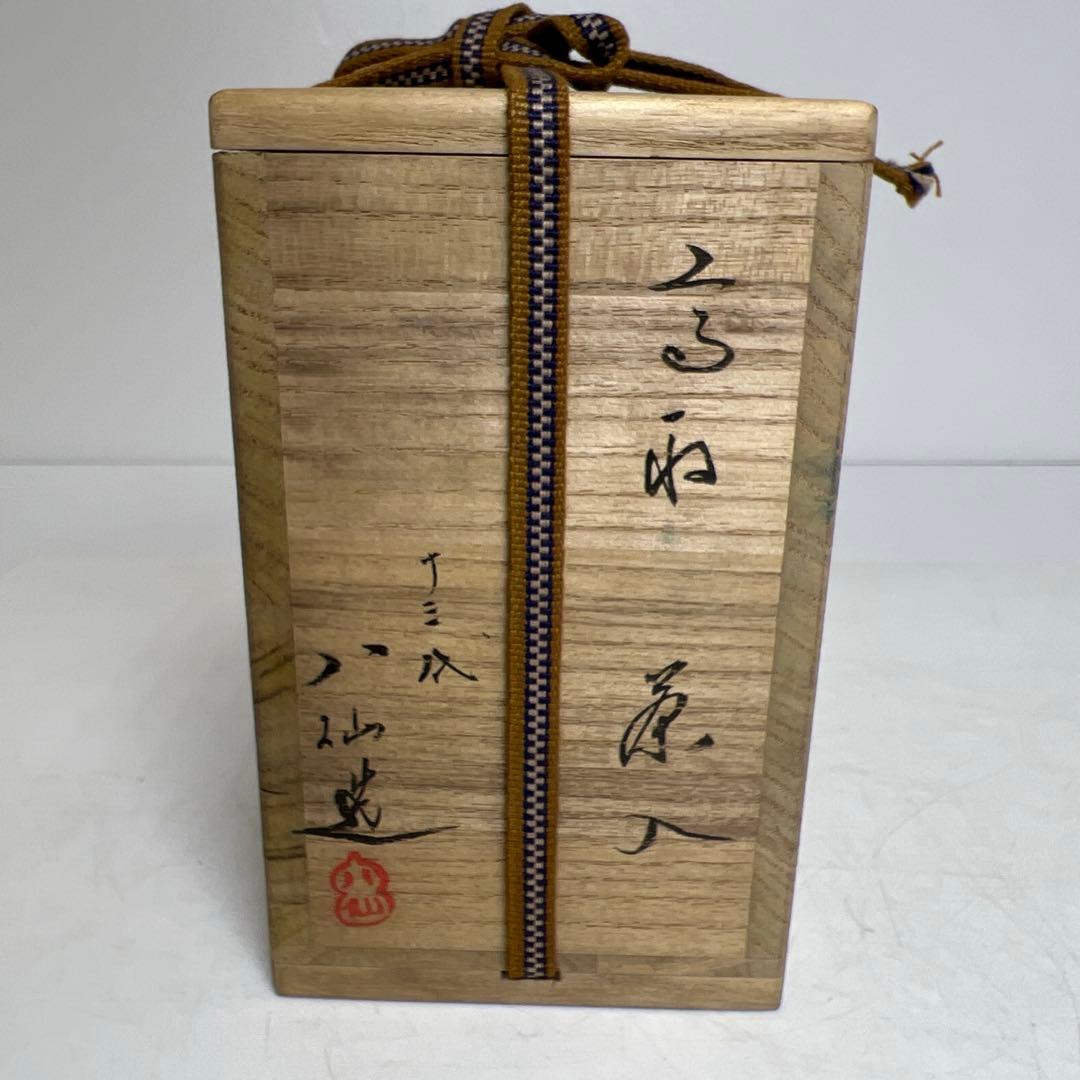 高取 茶入
十三代
八仙造
八仙